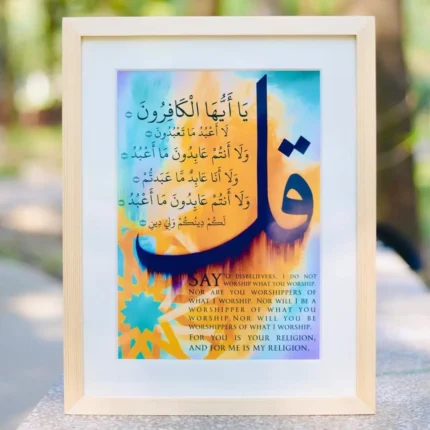 قل
يَا أَيُّهَا الْكَافِرُونَ
لَا أَعْبُدُ مَا تَعْبُدُونَ
وَلَا أَنتُمْ عَابِدُونَ مَا أَعْبُدُ
وَلَا أَنَا عَابِدٌ مَّا عَبَدتُّمْ
وَلَا أَنتُمْ عَابِدُونَ مَا أَعْبُدُ
لَكُمْ دِينُكُمْ وَلِيَ دِينِ
SAY "O DISBELIEVERS, I DO NOT
WORSHIP WHAT YOU WORSHIP.
NOR ARE YOU WORSHIPPERS OF
WHAT I WORSHIP. NOR WILL I BE A
WORSHIPPER OF WHAT YOU
WORSHIP. NOR WILL YOU BE
WORSHIPPERS OF WHAT I WORSHIP.
FOR YOU IS YOUR RELIGION,
AND FOR ME IS MY RELIGION.